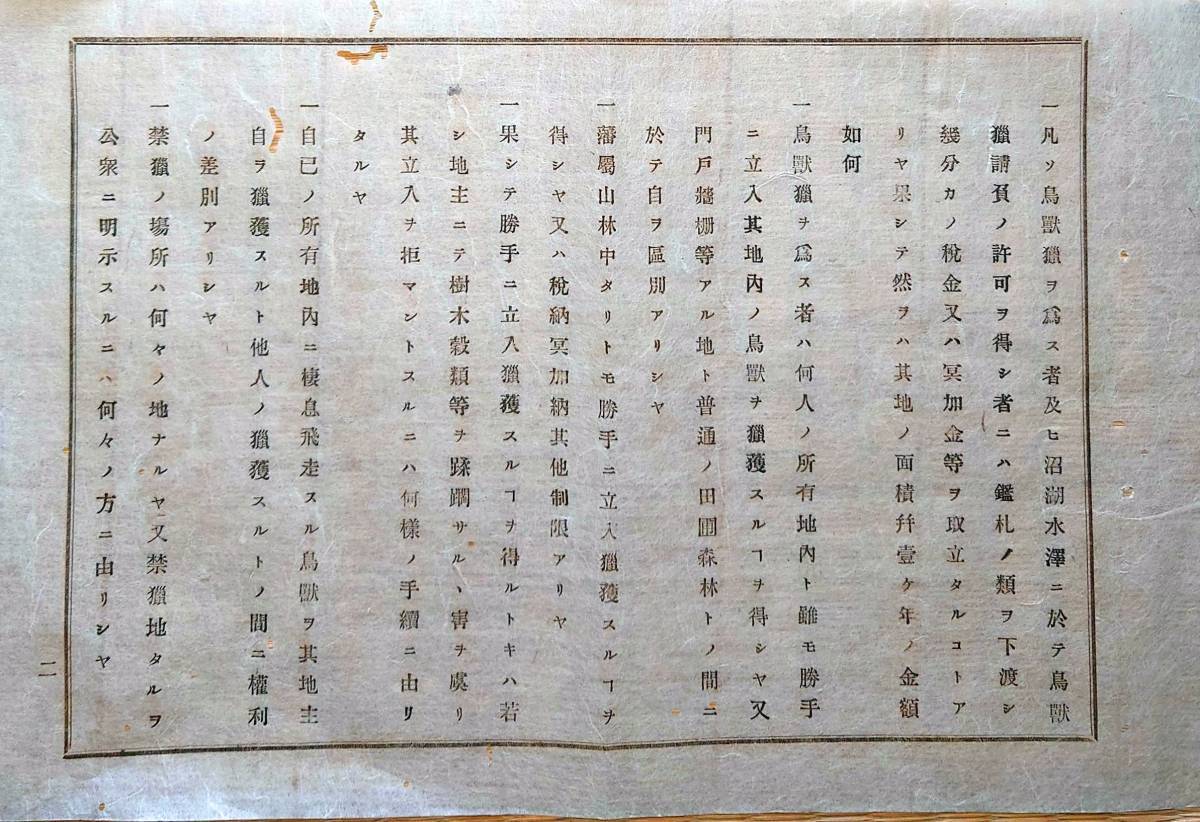 一凡ソ鳥獸獵ヲ爲ス者及ヒ沼湖水澤ニ於テ鳥獸
獵請負ノ許可ヲ得シ者ニハ鑑札ノ類ヲ下渡シ
幾分カノ稅金又ハ冥加金等ヲ取立タルコトア
リヤ果シテ然ヲハ其地ノ面積幷壹ケ年ノ金額
如何
一鳥獸獵ヲ爲ス者ハ何人ノ所有地內ト雖モ勝手
ニ立入其地內ノ鳥獸ヲ獵獲スルヿヲ得シヤ又
門戶牆栅等アル地ト普通ノ田圃森林トノ間ニ
於テ自ヲ區別アリシヤ
一藩屬山林中タリトモ勝手ニ立入獵獲スルヿヲ
得シヤ又ハ稅納冥加納其他制限アリヤ
一果シテ勝手ニ立入獵獲スルヿヲ得ルトキハ若
シ地主ニテ樹木穀類等ヲ蹂躙サルヽ害ヲ虞リ
其立入ヲ拒マントスルニハ何樣ノ手續ニ由リ
タルヤ
一自已ノ所有地內ニ棲息飛走スル鳥獸ヲ其地主
自ヲ獵獲スルト他人ノ獵獲スルトノ間ニ權利
ノ差別アリシヤ
一禁獵ノ塲所ハ何々ノ地ナルヤ又禁獵地タルヲ
公衆ニ明示スルニハ何々ノ方ニ由リシヤ
二